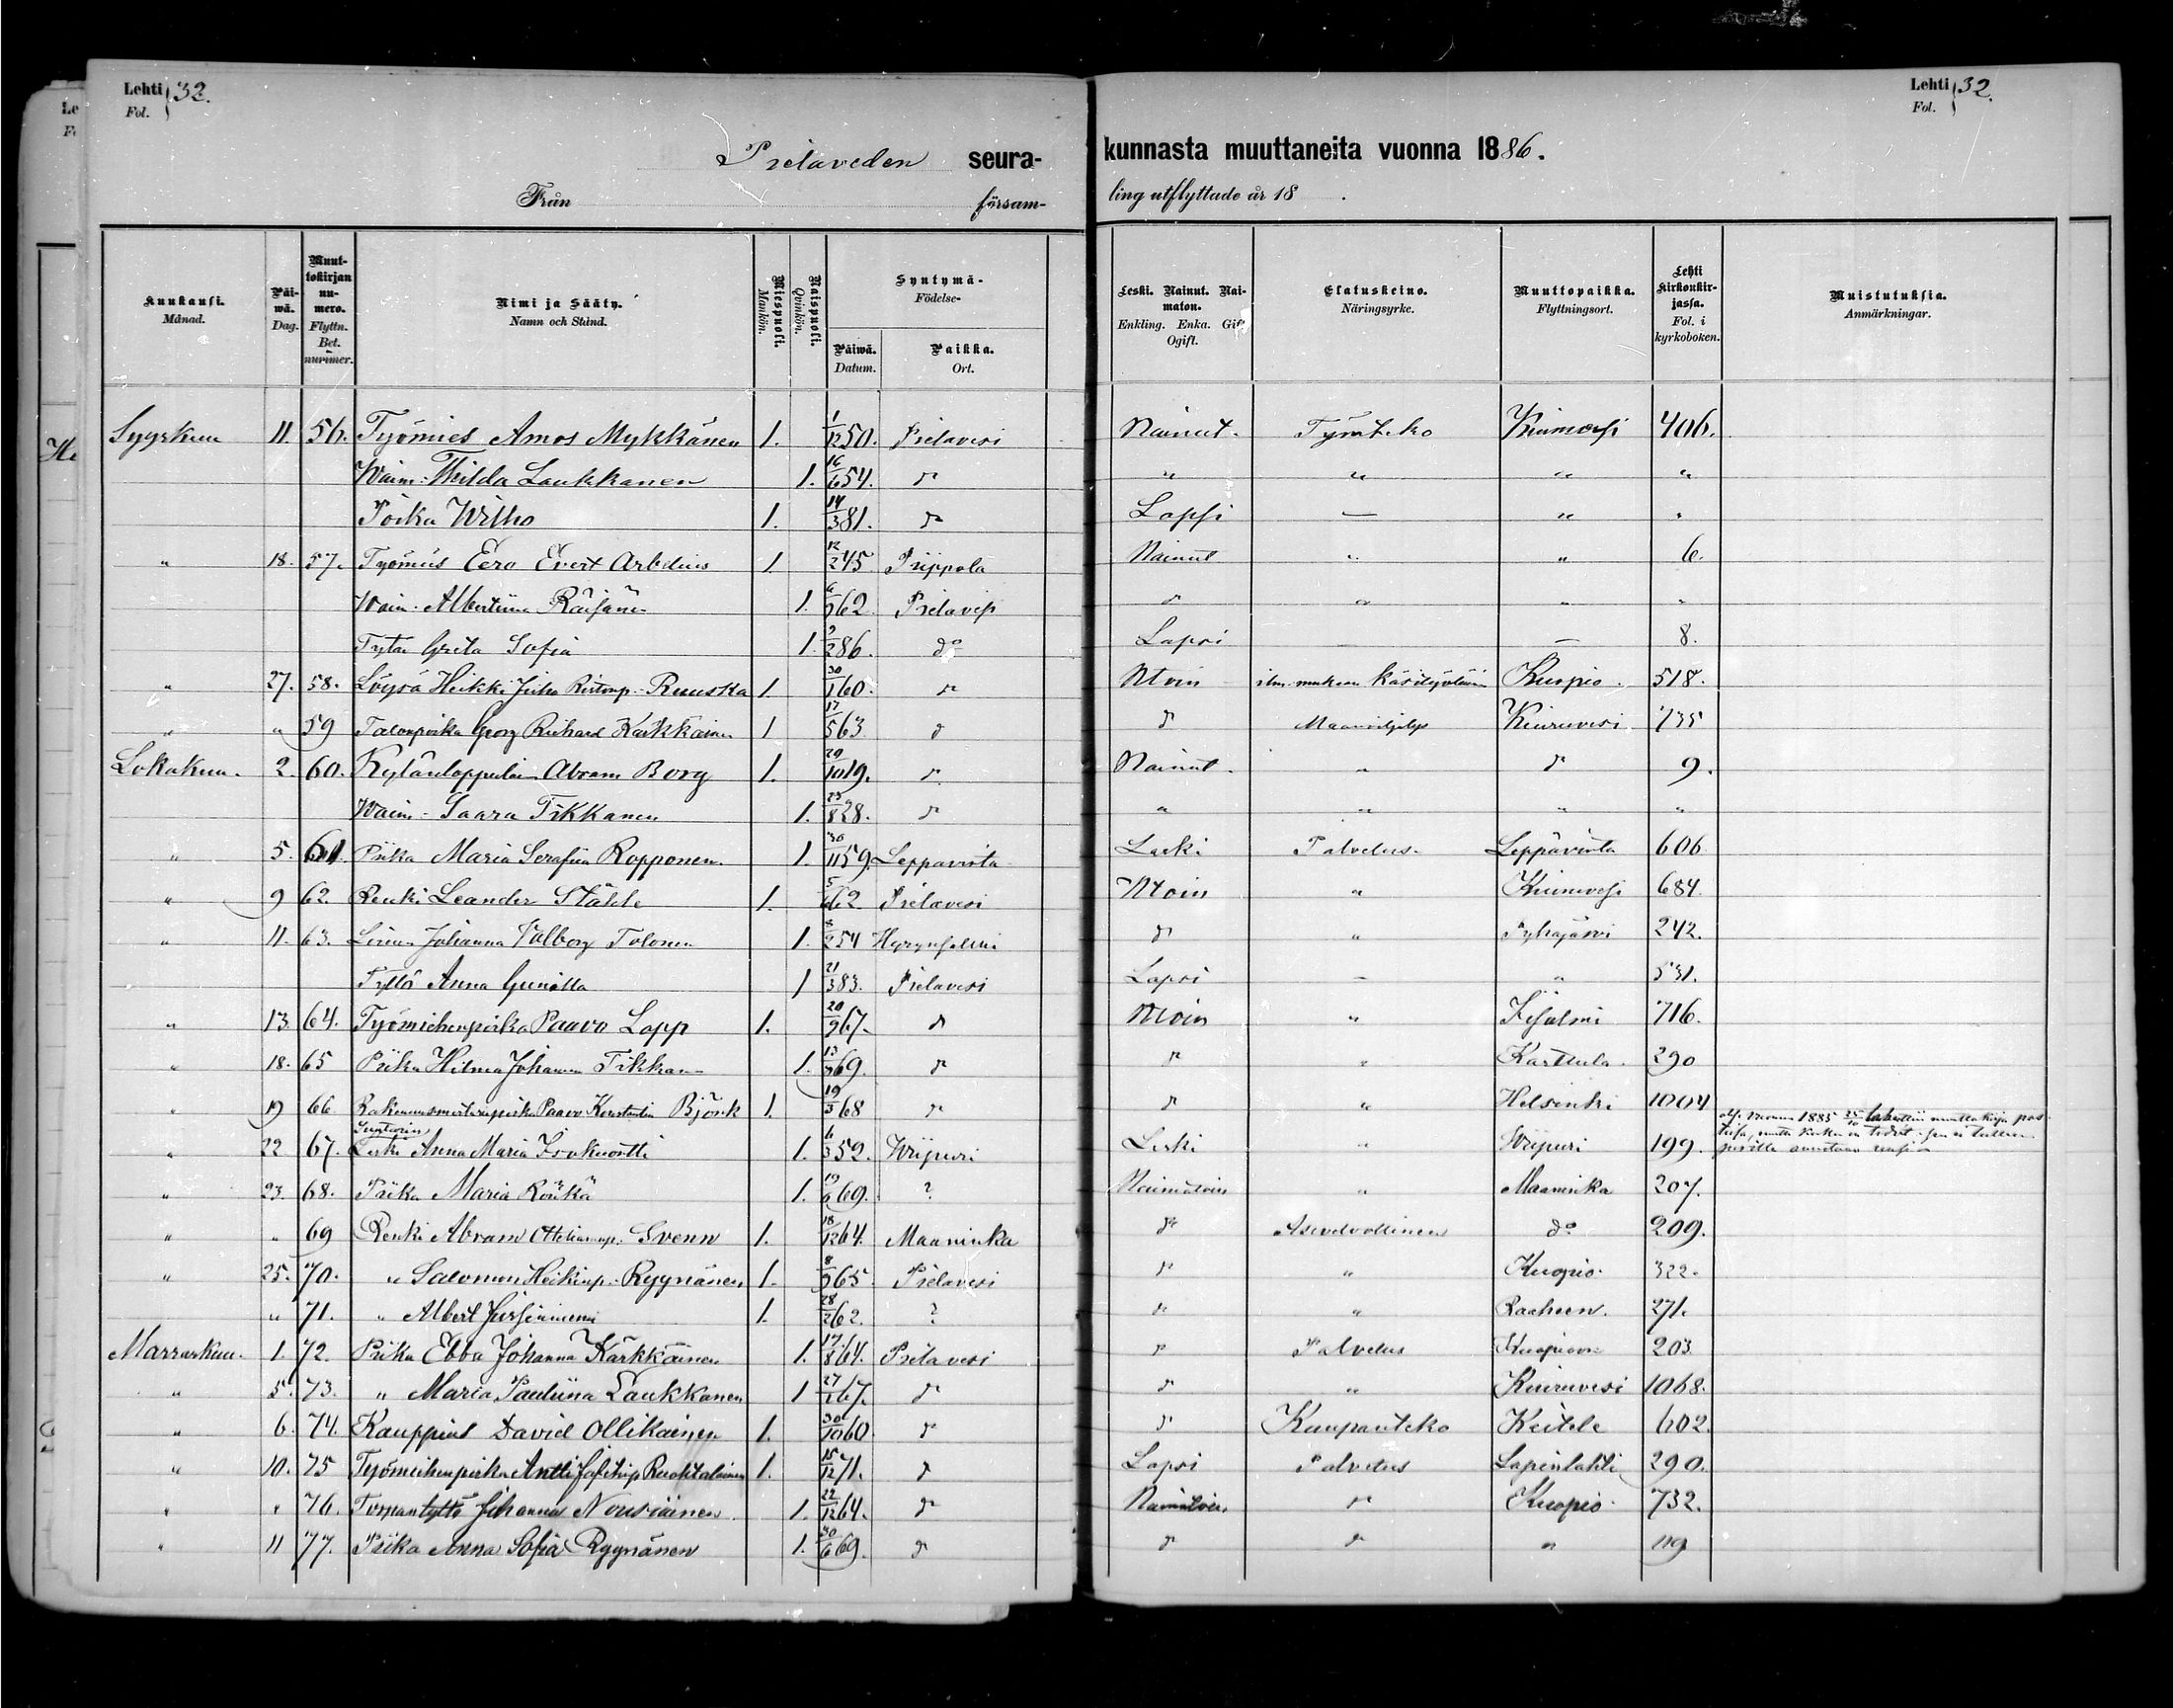 Lehti 32.
Fol.
Lehti 32.
Fol.
Pielaveden seura- kunnasta muuttaneita vuonna 1886.
Från försam- ling utflyttade år 18 .
Kuukausi. Månad.
Päi-wä. Dag.
Muut-tokirjan nu-mero. Flyttn. Bet. nummer.
Nimi ja Sääty. Namn och Stånd.
Miespuoli. Mankön.
Naispuoli. Qvinkön.
Syntymä- Födelse-
Päiwä. Datum.
Paikka. Ort.
Leski. Nainut. Nai-maton. Enkling. Enka. Gift Ogift.
Elatuskeino. Näringsyrke.
Muuttopaikka. Flyttningsort.
Lehti kirkonkir-jassa. Fol. i kyrkoboken.
Muistutuksia. Anmärkningar.
Syyskuu 11. 56. Työmies Amos Mykkänen 1. 1/12 50. Pielavesi Nainut. Työnteko Kiuruvesi 406.
Waim. Hilda Laukkanen 1. 16/6 54. do " " " "
Poika Wilho 1. 14/3 81. do Lapsi — " "
" 18. 57. Työmies Eero Evert Arbelius 1. 12/2 45 Piippola Nainut " " 6.
Waim. Albertiina Räisänen 1. 62. Pielavesi do " " "
Tytär Greta Sofia 1. 2/2 86. do Lapsi — — 8.
" 27. 58. Löysä Heikki Juho Ristonp. Ruuska 1. 30/1 60. do Ntoin käsityöläinen Kuopio. 518.
" " 59 Talonpoika Georg Richard Karkkainen 1 17/5 63 do do Maanviljelys Kiuruvesi 735
Lokakuu. 2. 60. Kylänloppulain. Abram Borg 1. 20/10 19. do Nainut. " do 9.
Waim. Saara Tikkanen 1. 25/8 28. do " " " "
" 5. 61. Piika Maria Serafiia Ropponen 1. 30/11 59. Leppavirta Leski Palvelus. Leppävirta 606
" 9 62. Renki Leander Ståhle 1. 5/6 62. Pielavesi Ntoin " Kiuruvesi 684.
" 11. 63. Johanna Valborg Tolonen 1. 8/2 54 Hyrynsalmi do " Pyhajärvi 242.
Tyttö Anna Gunilla 1 21/3 83. Pielavesi Lapsi — " 531.
" 13. 64. Työmiehenpoika Paavo Lapp 1. 20/9 67. do Ntoin " Iisalmi 716.
" 18. 65 Piika Hilma Johanna Tikkanen 1. 13/ 69. do do " Karttula. 290
" 19 66 Rakennusmestarinpoika Paavo Konstantin Björk 1. 19/3 68 do do " Helsinki 1004
" 22 67. Suutarin Leski Anna Maria Isokuortti 1. 6/3 52. Wiipuri Leski " Wiipuri 199. vuonna 1885 25/10 muuttokirja
" 23. 68. Piika Maria Rönkä 1. 19/6 69. ? Naimatoin " Maaninka 207.
" " 69 Renki Abram Svenn 1. 18/12 64. Maaninka do Asevelvollinen do 209.
" 25. 70. " Salomon Heikinp. Ryynänen 1. 8/9 65. Pielavesi do " Kuopio. 322.
" 71. " Albert 1. 28/2 62. ? do " Raaheen. 271.
Marraskuu. 1. 72. Piika Ebba Johanna Kärkkäinen 1. 17/8 64. Pielavesi do Palvelus Kuopioon 203
" 5. 73. " Maria Pauliina Laukkanen 1 27/1 67. do do " Kiuruvesi 1068.
" 6. 74. Kauppias David Ollikainen 1. 30/10 60. do do Kaupanteko Keitele 602.
" 10. 75 Työmiehenpoika Antti Ruohtalainen 1. 15/12 71. do Lapsi Palvelus Lapinlahti 290.
" " 76. Torpantyttö Johanna Nousiainen 1. 22/12 64. do Naimatoin do Kuopio. 732.
" 11 77. Piika Anna Sofia Ryynänen 1. 30/6 69. do do do " 119